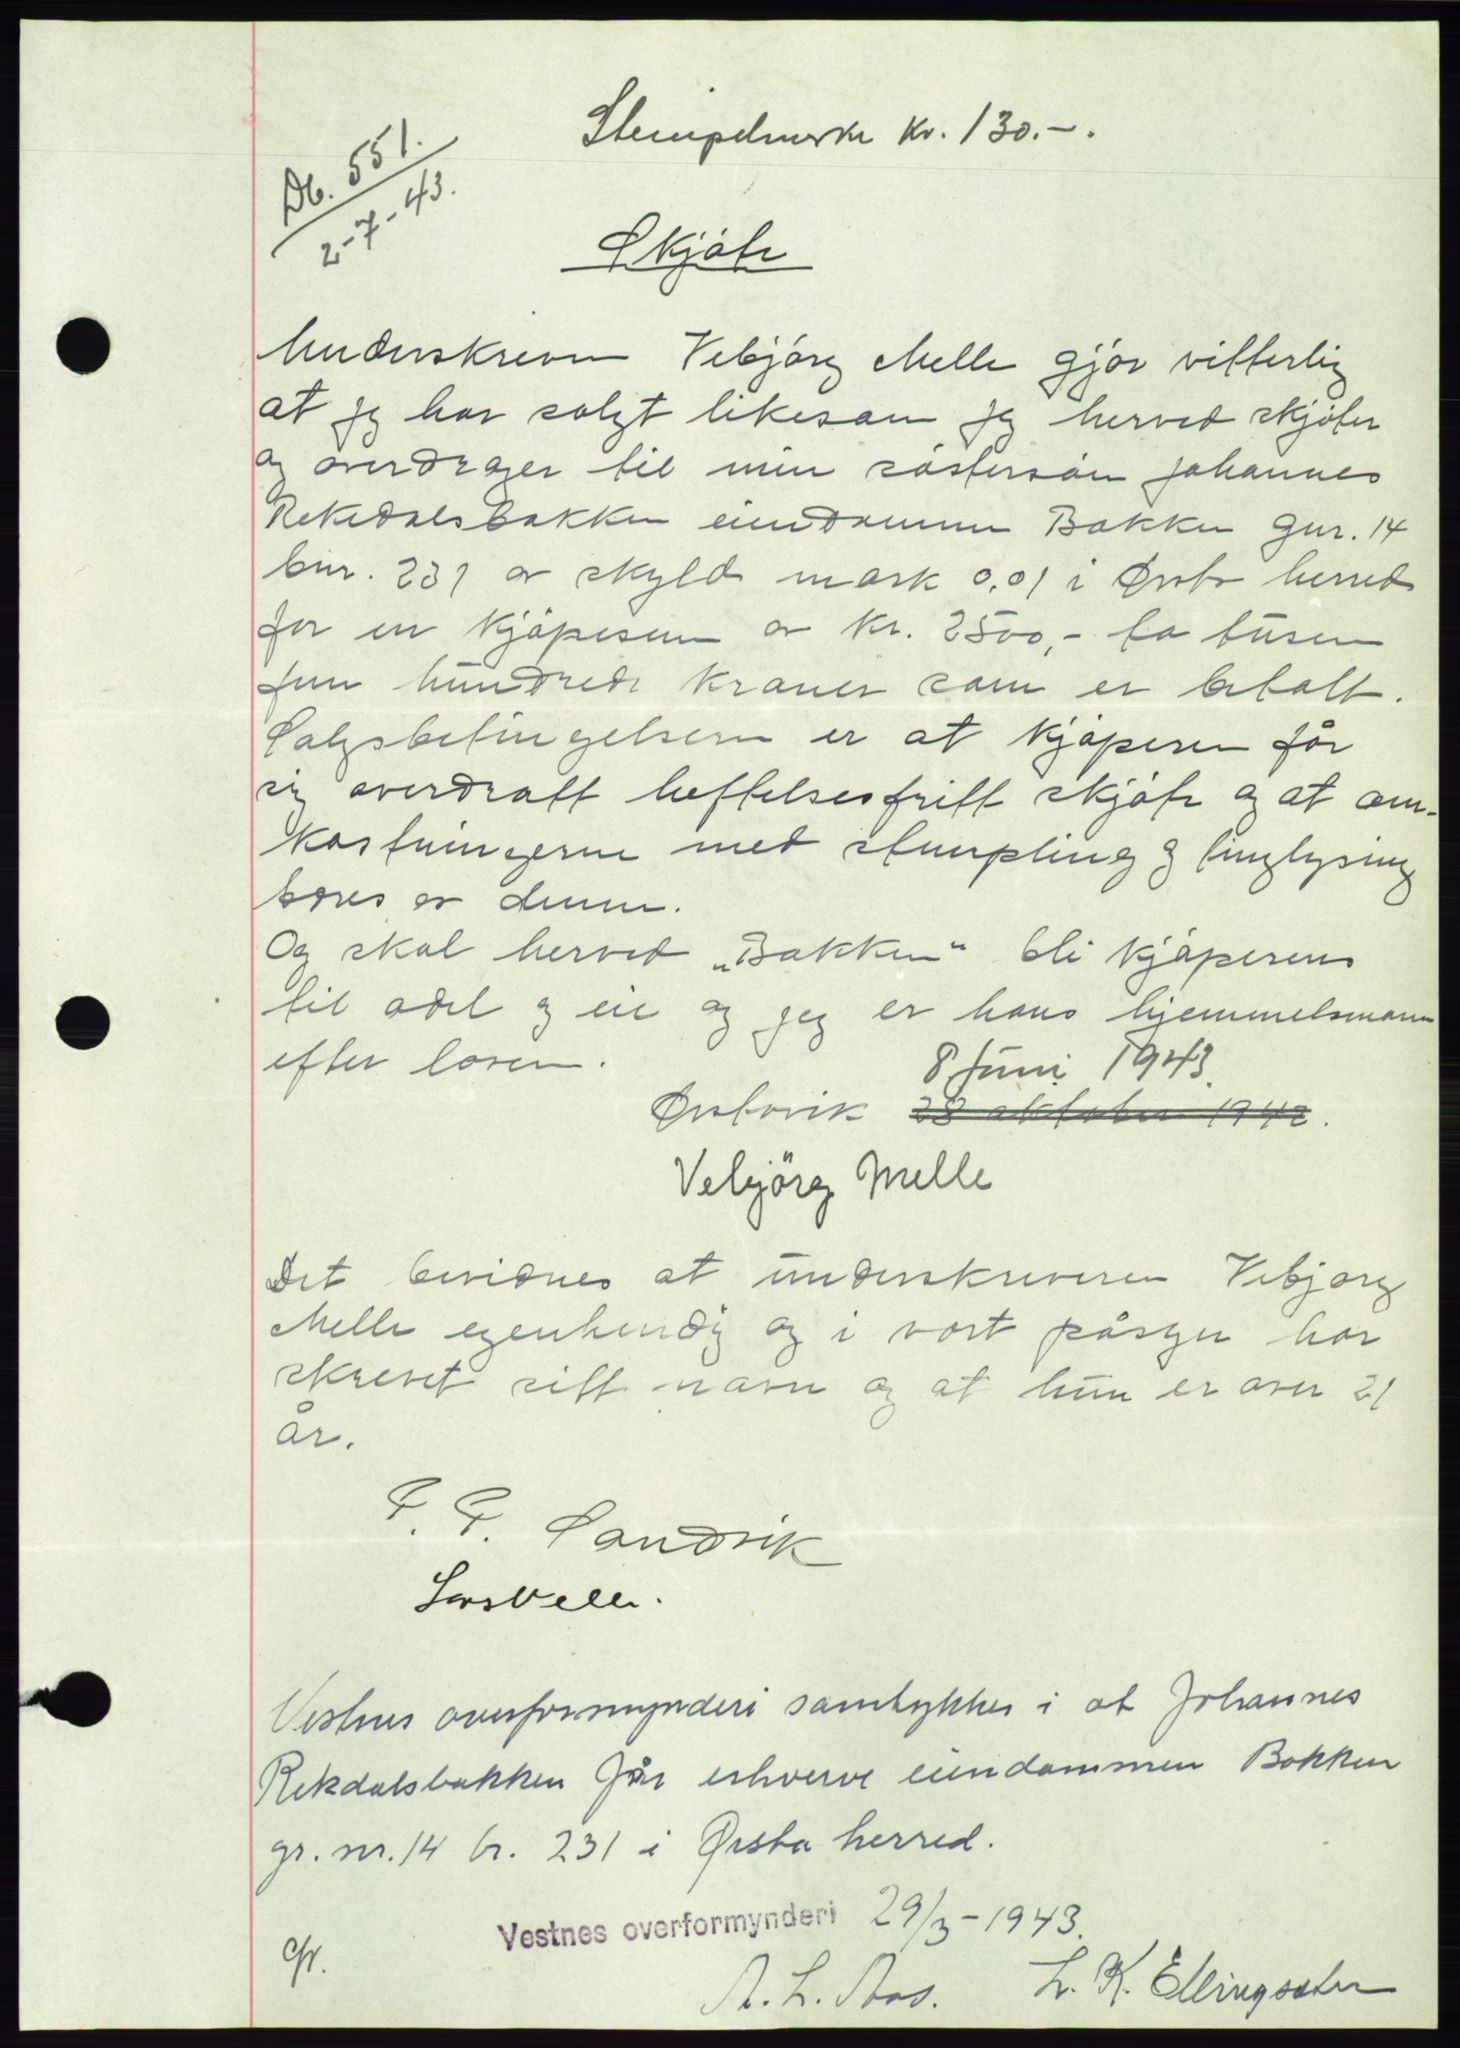 Stempelmerke kr. 130.-.
Db. 551.
2-7-43.
Skjøte
Underskreven Vebjörg Melle gjör vitterlig
at jeg har solgt likesom jeg herved skjöter
og overdrager til min söstersön Johannes
Rekdalsbakken eiendommen Bakken gnr. 14
bnr. 231 av skyld mark 0,01 i Ørsta herred
for en kjöpesum av kr. 2500,- to tusen
fem hundrede kroner som er betalt.
Salgsbetingelsene er at kjöperen får
sig overdratt heftelsesfritt skjöte og at om-
kostningerne med stempling og tinglysing
bæres av denne.
Og skal herved „Bakken" bli kjöperens
til odel og eie og jeg er hans hjemmelsmann
efter loven.
8 Juni 1943.
Ørstavik 28 oktober 1942.
Vebjörg Melle
Det bevidnes at underskriveren Vebjorg
Melle egenhendig og i vort påsyn har
skrevet sitt navn og at hun er over 21
år.
P. P. Sandvik
Lars Velle.
Vestnes overformynderi samtykker i at Johannes
Rekdalsbakken får erhverve eiendommen Bakken
gr. nr. 14 br. 231 i Ørsta herred.
Vestnes overformynderi 29/3-1943.
A. L. Aas. L. K. Ellingsæter